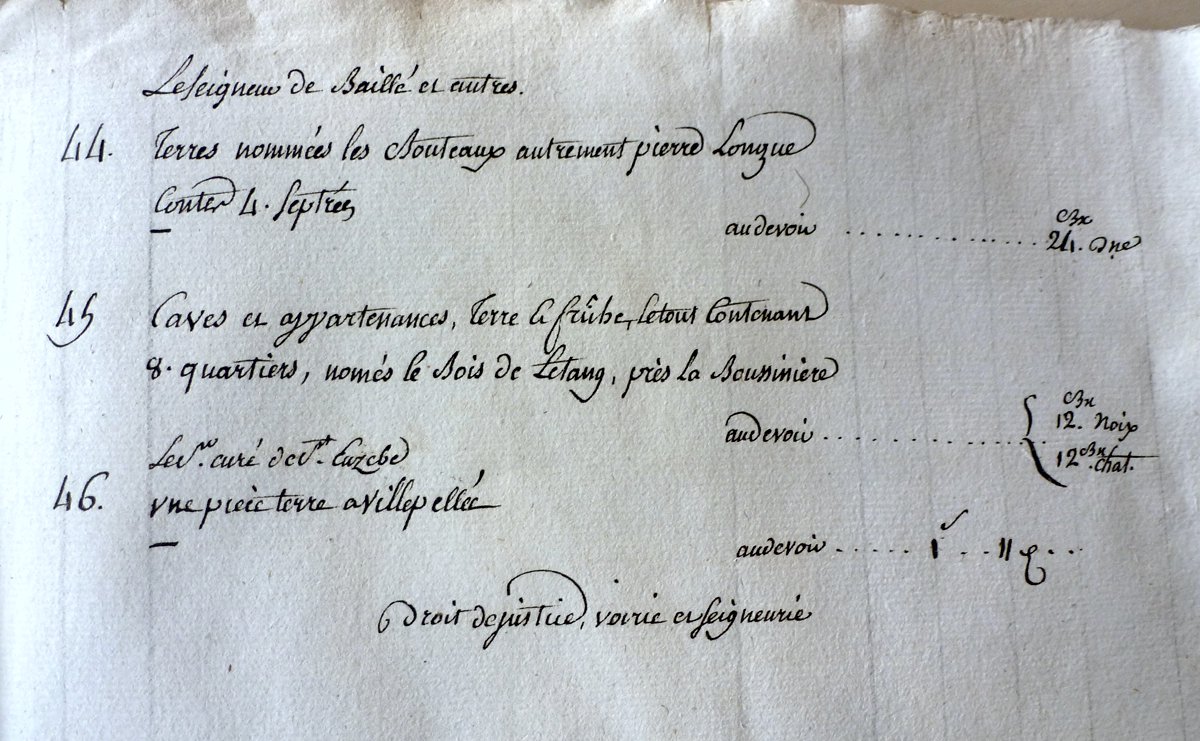 Le seigneur de Baillé et autres.
44. Terres nommées les Bouteaux autrement pierre Longue
Conten 4. septrées
au devoir ............ 24. Bx ône
45 Caves et appartenances, Terre & frûche, le tout Contenant
8. quartiers, només le Bois de Letang, près la Boussinière
au devoir ............ 12. Bx Noix
12 Bx Chat.
Le Sr. curé de St. Euzebe
46. vne pièce terre a Villepellée
au devoir ..... I s .. II d ...
Droit de justice, voirie et seigneurie